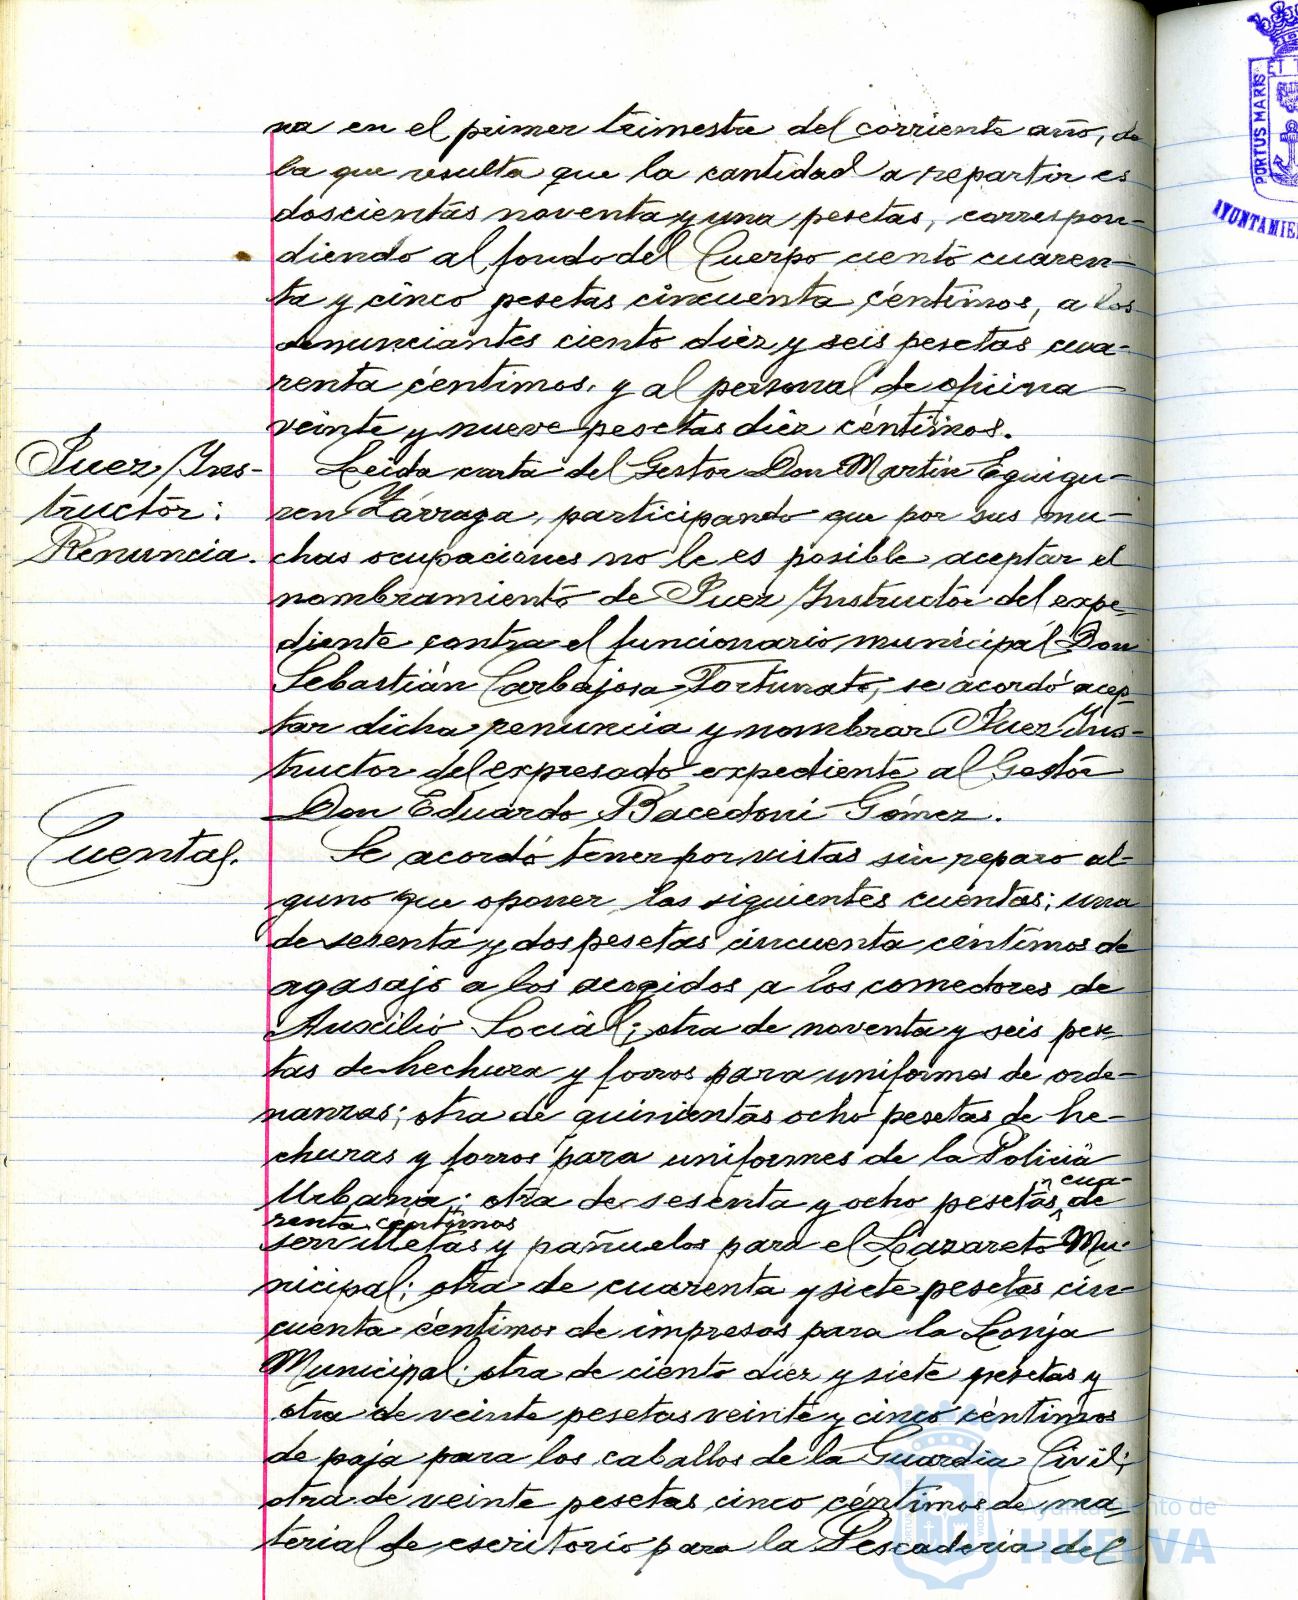 na en el primer trimestre del corriente año, de
la que resulta que la cantidad a repartir es
doscientas noventa y una pesetas, correspon-
diendo al fondo del Cuerpo ciento cuaren-
ta y cinco pesetas cincuenta céntimos, a los
denunciantes ciento diez y seis pesetas cua-
renta céntimos, y al personal de oficina
veinte y nueve pesetas diez céntimos.
Juez Ins-
tructor:
Renuncia.
Leida carta del Gestor Don Martín Eguigu-
ren Zárraga, participando que por sus mu-
chas ocupaciones no le es posible aceptar el
nombramiento de Juez Instructor del expe-
diente contra el funcionario municipal Don
Sebastián Carbajosa Fortunato, se acordó acep-
tar dicha renuncia y nombrar Juez Ins-
tructor del expresado expediente al Gestor
Don Eduardo Bacedoni Gómez.
Cuentas.
Se acordó tener por vistas sin reparo al-
guno que oponer las siguientes cuentas; una
de sesenta y dos pesetas cincuenta céntimos de
agasajo a los acogidos a los comedores de
Auxilio Social; otra de noventa y seis pese-
tas de hechura y forros para uniformes de orde-
nanzas; otra de quinientas ocho pesetas de he-
churas y forros para uniformes de la Policía
Urbana; otra de sesenta y ocho pesetas cua-
renta céntimos de
servilletas y pañuelos para el Lazareto Mu-
nicipal; otra de cuarenta y siete pesetas cin-
cuenta céntimos de impresos para la Lonja
Municipal; otra de ciento diez y siete pesetas y
otra de veinte pesetas veinte y cinco céntimos
de paja para los caballos de la Guardia Civil;
otra de veinte pesetas cinco céntimos de ma-
terial de escritorio para la Pescadería del
PORTUS MARIS
AYUNTAMIE
Ayuntamiento de
HUELVA